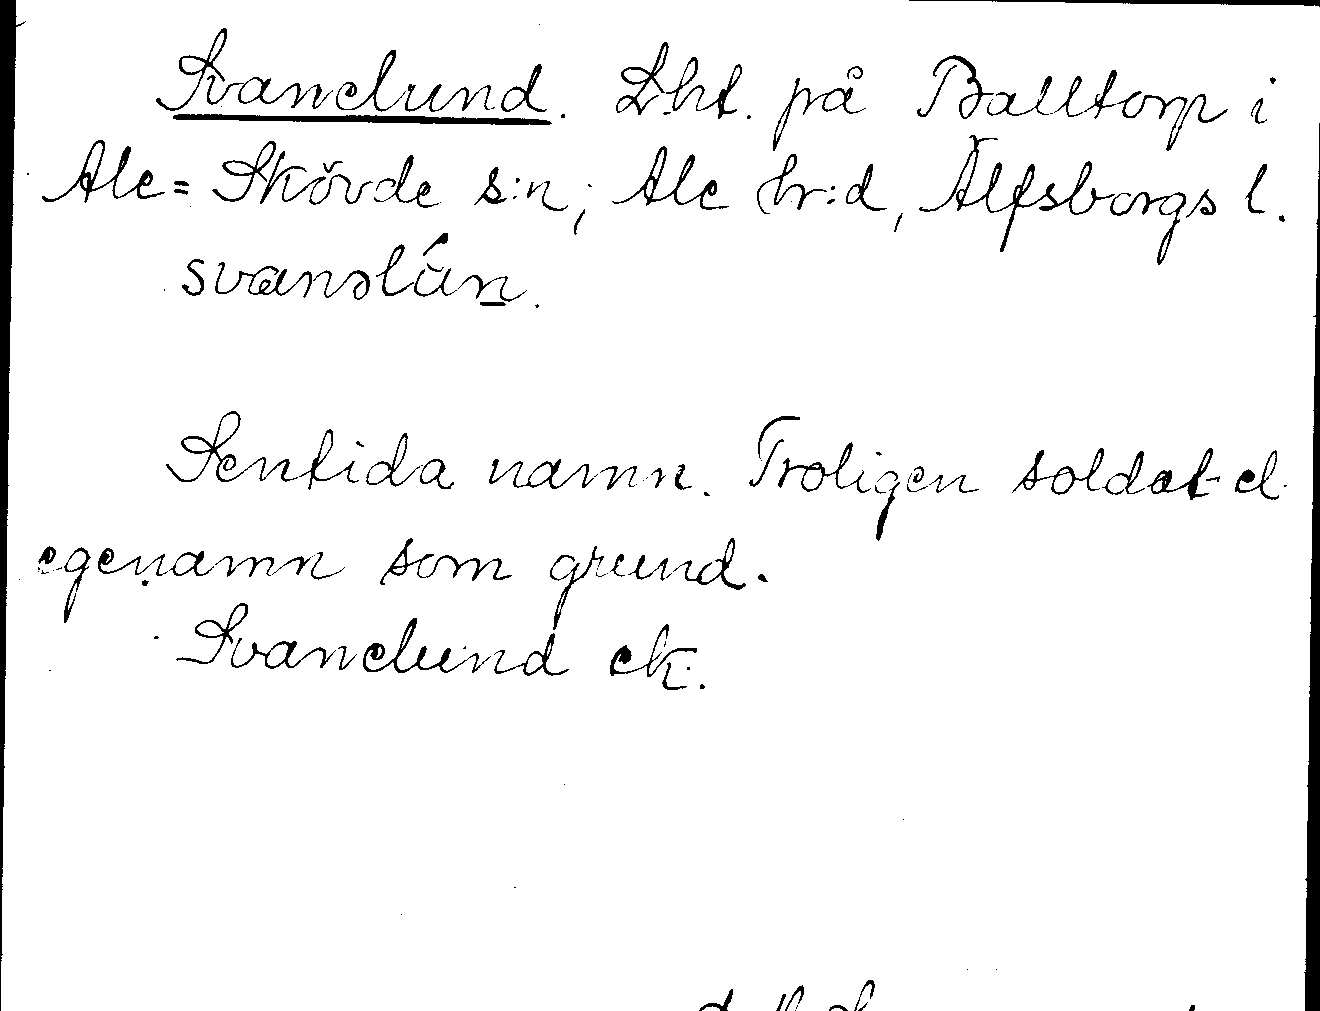 Svanelund. Lht. på Balltorp i
Ale=Skövde s:n, Ale hr:d, Älfsborgs l.
svanəlún.
Sentida namn. Troligen soldat- el.
egenamn som grund.
Svanelund ek.